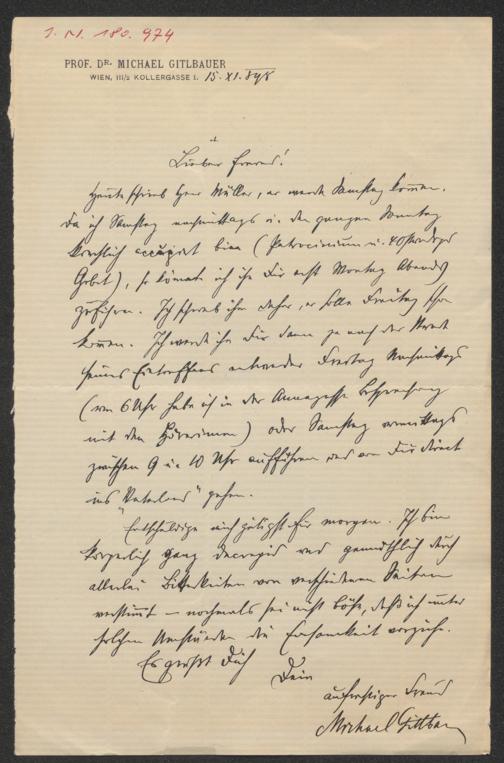 I. N. 180.974
PROF. DR. MICHAEL GITLBAUER
WIEN, III/2 KOLLERGASSE 1. 15. XI. 898
Lieber Freund!
Heute schrieb Herr Müller, er werde Samstag kommen.
Da ich Samstag nachmittags u. den ganzen Sonntag
kirchlich occupirt bin (Patrocinium u. 40stündiges
Gebet), so könnte ich ihn Dir erst Montag Abends
zuführen. Ich schrieb ihm daher, er solle Freitag schon
kommen. Ich werde ihn Dir dann je nach der Stunde
seines Eintreffens entweder Freitag Nachmittags
(um 6 Uhr habe ich in der Annagasse Besprechung
mit den Hörerinnen) oder Samstag vormittags
zwischen 9 u. 10 Uhr aufführen und an Dir direct
ins "Vaterland" gehen.
Entschuldige mich gütigst für morgen. Ich bin
körperlich ganz und gemüthlich durch
allerlei Bitterkeiten von verschiedenen Seiten
verstimmt – nochmals sei nicht böse, daß ich unter
solchen Umständen die Einsamkeit vorziehe.
Es grüßt Dich
Dein
aufrichtiger Freund
Michael Gitlbauer